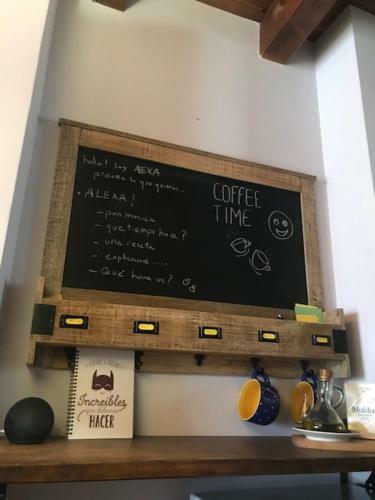 hola! soy ALEXA
pideme lo que quieras...
• ALEXA!
– pon musica
– que tiempo hace?
– una receta
– explicame .....
– Qué hora es?
COFFEE
TIME
Increíbles
HACER
Maldon